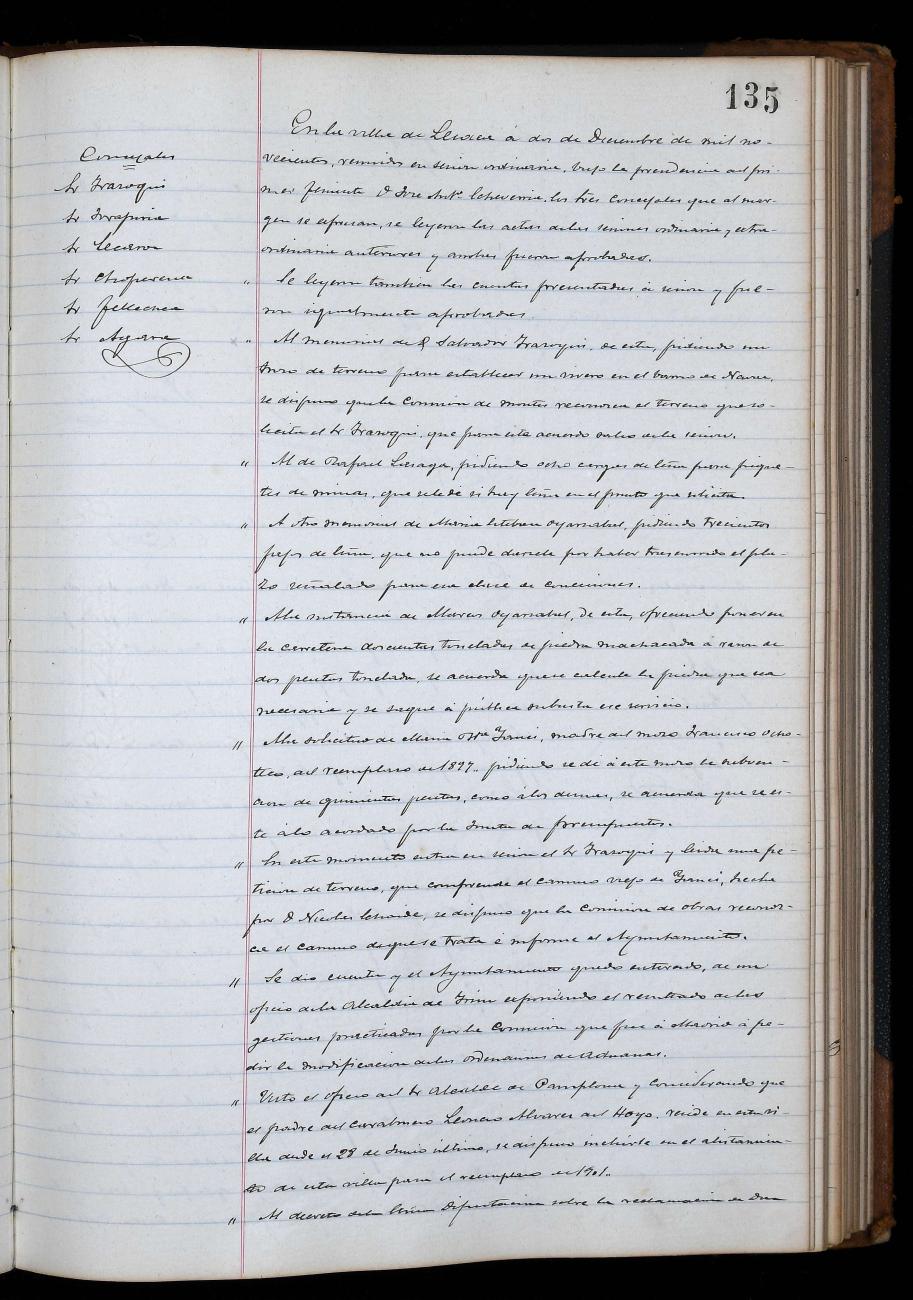 135
En la villa de Lesaca a dos de Diciembre de mil no-
vecientos, reunidos en sesion ordinaria, bajo la presidencia del pri-
mer Teniente D José Antº Echeverria, los tres concejales que al mar-
gen se espresan, se leyeron las actas de las sesiones ordinaria y extra-
ordinaria anteriores y ambas fueron aprobadas.
Concejales
Sr Irazoqui
Sr
Sr
Sr Choperena
Sr Tellechea
Sr
" Se leyeron tambien las cuentas presentadas á sesion y fue-
ron igualmente aprobadas.
" Al memorial de D Salvador Irazoqui, de esta, pidiendo un
trozo de terreno para establecer un vivero en el barrio de
se dispuso que la Comision de montes reconozca el terreno que so-
licita el Sr Irazoqui, que para este acuerdo salio de la sesion.
" Al de Rafael pidiendo ocho cargas de leña para pique-
tes de minas, que se le dé si hay leña en el punto que solicita.
" A otro memorial de Maria Esteban Oyarzabal, pidiendo trecientos
de leña, que no puede darsele por haber trascurrido el pla-
zo señalado para esa clase de concesiones.
" A la instancia de Marcos Oyarzabal, de esta, ofreciendo poner en
la carretera doscientas toneladas de piedra machacada á razon de
dos pesetas tonelada, se acuerda que se calcule la piedra que sea
necesaria y se saque á pública subasta ese servicio.
" A la solicitud de Maria madre del mozo Francisco Ocho-
teco, del reemplazo de 1897, pidiendo se dé á este mozo la subven-
cion de quinientas pesetas, como á los demas, se acuerda que se es-
te á lo acordado por la Junta de Presupuestos.
" En este momento entra en sesion el Sr Irazoqui y leida una pe-
ticion de terreno, que comprende el camino viejo de Yanci, hecha
por D Nicolas se dispuso que la Comision de obras reconoz-
ca el camino de que se trata é informe al Ayuntamiento.
" Se dio cuenta y el Ayuntamiento quedó enterado, de un
oficio de la Alcaldia de Irún esponiendo el resultado de las
gestiones practicadas por la Comision que fue á Madrid á pe-
dir la modificacion de las ordenanzas de Aduanas.
" Visto el oficio del Sr Alcalde de Pamplona y considerando que
el padre del carabinero Leoncio Alvarez del Hoyo, reside en esta vi-
lla desde el 28 de Junio último, se dispuso incluirle en el alistamien-
to de esta villa para el reemplazo de 1901.
" Al decreto de la Exma Diputacion sobre la reclamacion de Don